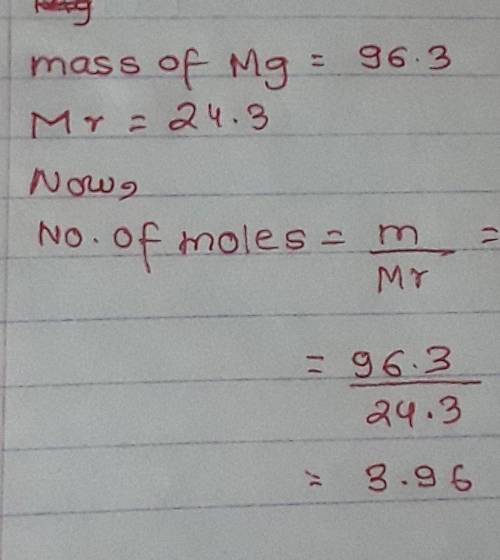 mass of Mg = 96.3
Mr = 24.3
Now,
No. of moles = m/Mr =
= 96.3/24.3
= 3.96